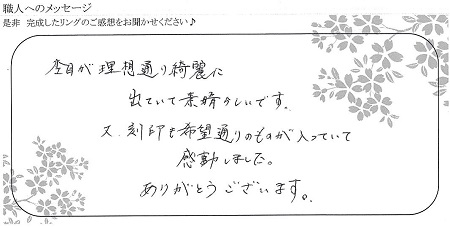 職人へのメッセージ
是非 完成したリングのご感想をお聞かせください♪
杢目が理想通り綺麗に
出ていて素晴らしいです。
又、刻印も希望通りのものが入っていて
感動しました。
ありがとうございます。